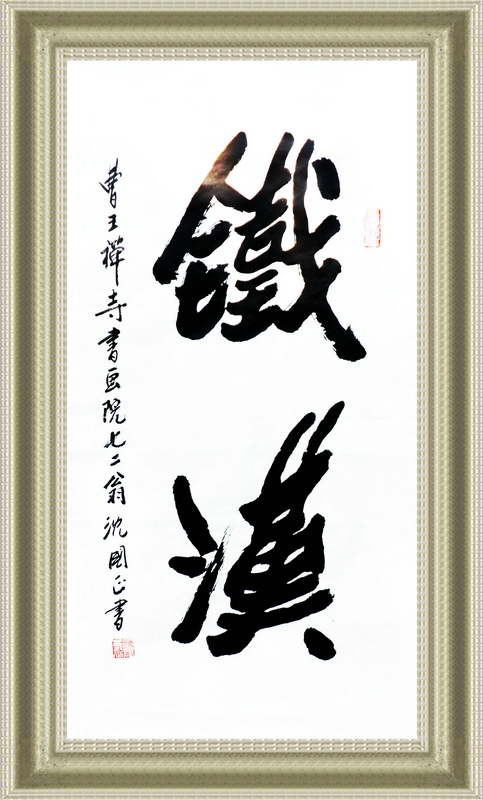 鐵漢
曹王禪寺書画院七二翁沈國正書